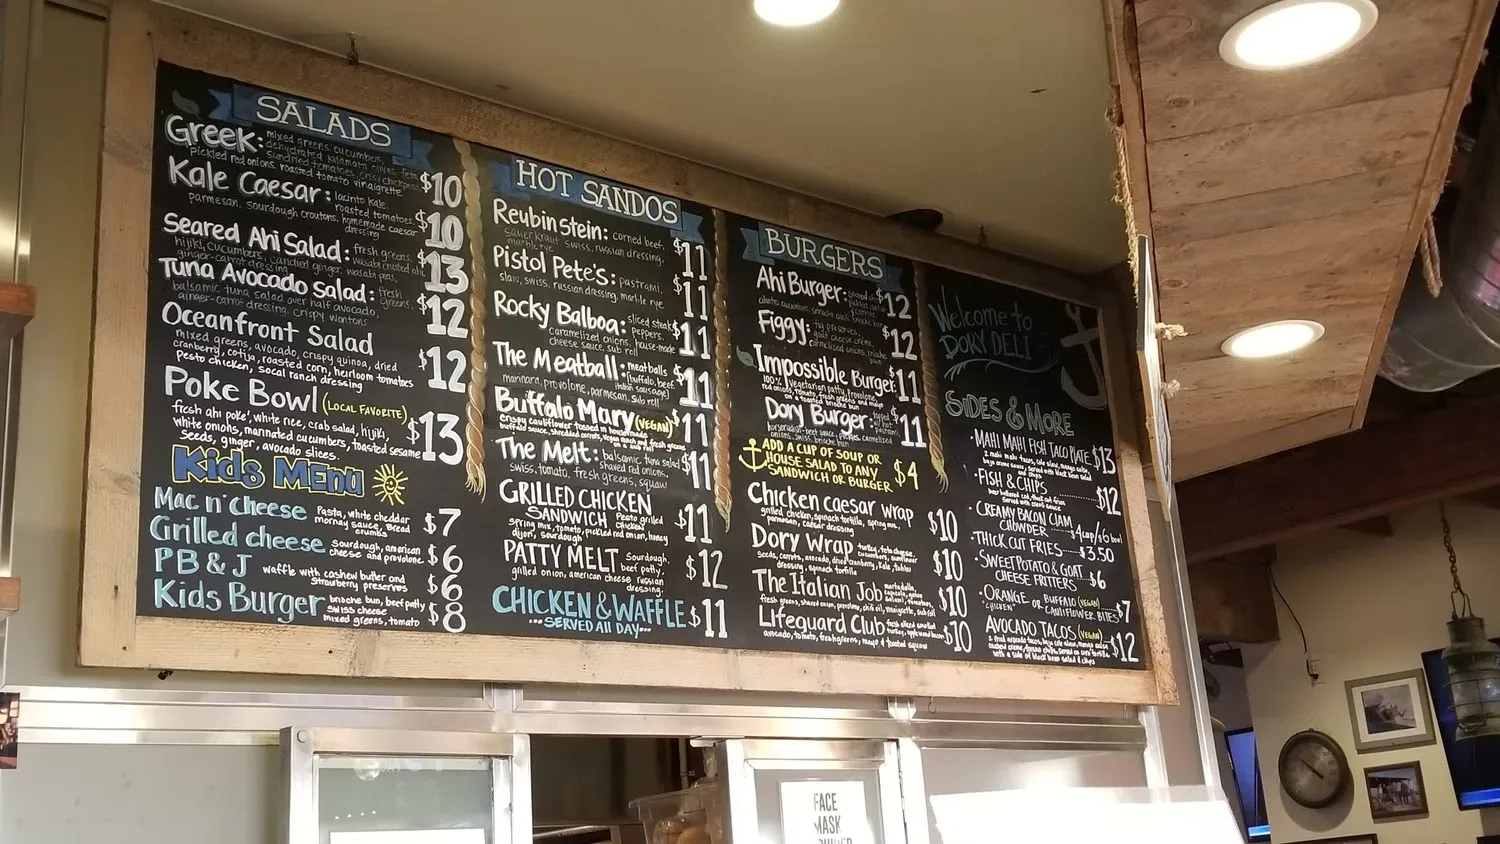 SALADS
Greek: mixed greens, cucumbers,
dehydrated kalamata olives, feta
sundried tomatoes, crisp chickpeas
pickled red onions, roasted tomato vinaigrette $10
Kale Caesar: lacinto kale,
roasted tomatoes,
parmesan, sourdough croutons, homemade caesar
dressing $10
Seared Ahi Salad: fresh greens,
hijiki, cucumbers, candied ginger, wasabi peas,
ginger-carrot dressing $13
Tuna Avocado Salad: fresh
greens,
balsamic tuna salad over half avocado,
ginger-carrot dressing, crispy wontons $12
Oceanfront Salad
mixed greens, avocado, crispy quinoa, dried
cranberry, cotija, roasted corn, heirloom tomatoes
pesto chicken, socal ranch dressing $12
Poke Bowl (LOCAL FAVORITE)
fresh ahi poke, white rice, crab salad, hijiki,
white onions, marinated cucumbers, toasted sesame
seeds, ginger, avocado slices. $13
Kids Menu
Mac n' cheese Pasta, white cheddar
mornay sauce, Bread
crumbs $7
Grilled cheese sourdough, american
cheese and provolone $6
PB & J waffle with cashew butter and
strawberry preserves $6
Kids Burger brioche bun, beef patty
swiss cheese
mixed greens, tomato $8
HOT SANDOS
Reubinstein: corned beef,
sauerkraut, swiss, russian dressing,
marble rye $11
Pistol Pete's: pastrami,
slaw, swiss, russian dressing, marble rye $11
Rocky Balboa: sliced steak
peppers,
caramelized onions, house-made
cheese sauce, sub roll $11
The Meatball: meatballs
(buffalo, beef,
italian sausage)
marinara, provolone, parmesan, sub roll $11
Buffalo Mary (VEGAN)
crispy cauliflower tossed in
buffalo sauce, shredded carrots, vegan ranch and fresh greens $11
The Melt: balsamic tuna salad
shaved red onions,
swiss, tomato, fresh greens, squaw $11
GRILLED CHICKEN
SANDWICH Pesto grilled
chicken
spring mix, tomato, pickled red onion, honey
dijon, sourdough $11
PATTY MELT Sourdough,
beef patty,
grilled onion, american cheese, russian
dressing. $12
CHICKEN & WAFFLE $11
...SERVED ALL DAY...
BURGERS
Ahi Burger: $12
Figgy: fig preserves,
goat cheese crème,
caramelized onions, brioche
bun $12
Impossible Burger
100% vegetarian patty, provolone,
red onions, tomato, fresh greens and mayo
on a toasted brioche bun $11
Dory Burger:
horseradish-beet sauce, pickles, caramelized
onions, swiss, brioche bun $11
ADD A CUP OF SOUP OR
HOUSE SALAD TO ANY
SANDWICH OR BURGER $4
Chicken caesar wrap
grilled chicken, spinach tortilla, spring mix,
parmesan, caesar dressing $10
Dory Wrap turkey, feta cheese,
cucumbers, sunflower
seeds, carrots, avocado, dried cranberry, kale,
dressing, spinach tortilla $10
The Italian Job mortadella,
capicola, genoa
salami, tomatoes,
fresh greens, shaved onion, provolone, chili oil, vinaigrette, sub roll $10
Lifeguard Club fresh sliced smoked
turkey, applewood bacon
avocado, tomato, fresh greens, mayo & toasted squaw $10
Welcome to
DORY DELI
SIDES & MORE
• MAHI MAHI FISH TACO PLATE $13
• FISH & CHIPS
beer battered cod, thick cut fries
served with slaw $12
• CREAMY BACON CLAM
CHOWDER $4 cup/$6 bowl
• THICK CUT FRIES $3.50
• SWEET POTATO & GOAT
CHEESE FRITTERS $6
• ORANGE OR BUFFALO (VEGAN)
"CHICKEN" OR CAULIFLOWER BITES $7
AVOCADO TACOS (VEGAN)
with a side of black bean salad & chips $12
FACE
MASK